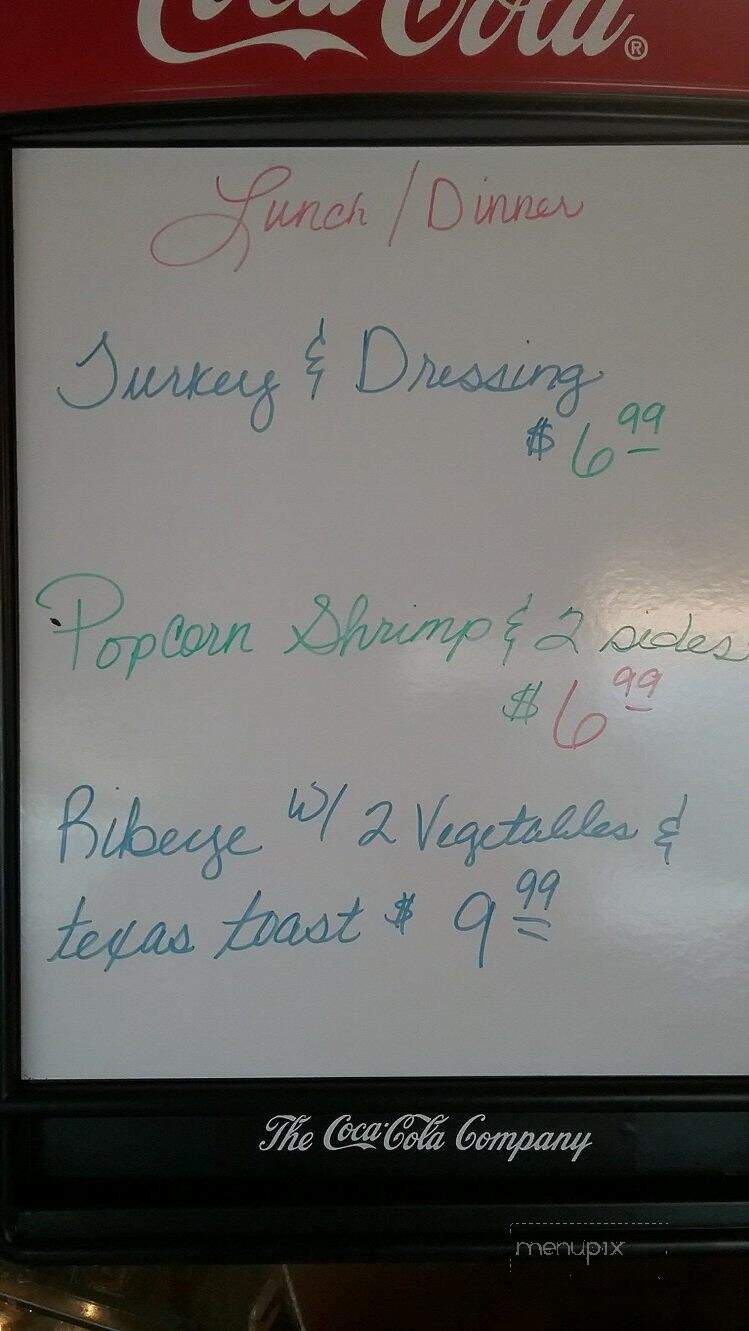 Coca-Cola®
Lunch / Dinner
Turkey & Dressing
$ 6.99
Popcorn Shrimp & 2 sides
$ 6.99
Ribeye w/ 2 Vegetables &
texas toast $ 9.99
The Coca-Cola Company
menupix